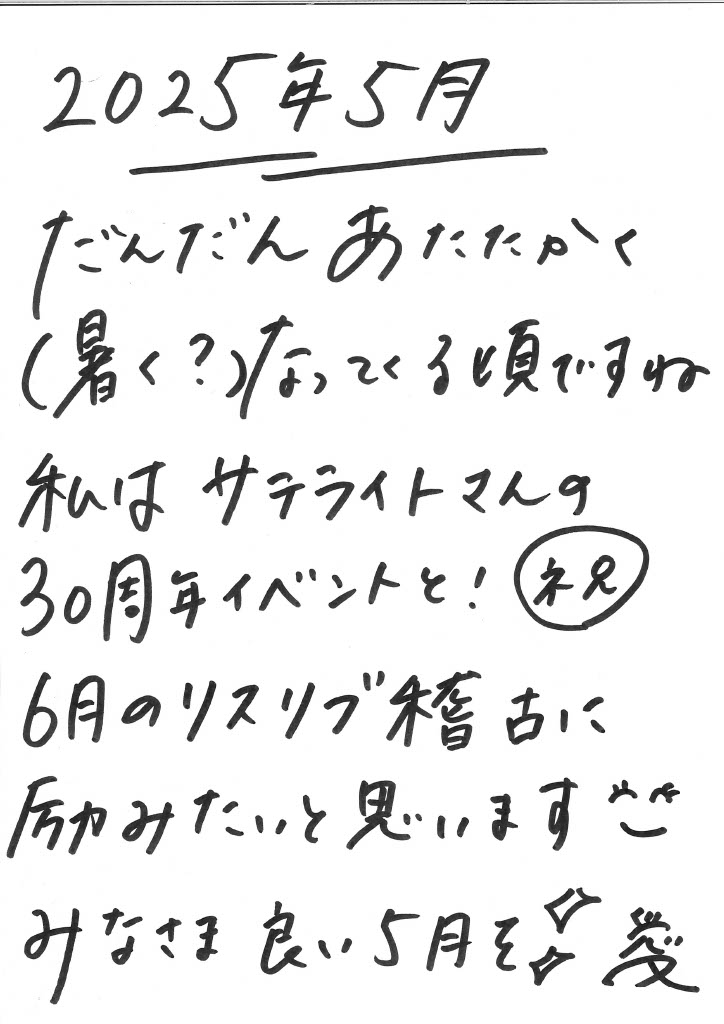 2025年5月
だんだん あたたかく
(暑く?)なってくる頃ですね
私は サテライトさんの
30周年イベントと! 祝
6月のリスリブ稽古に
励みたいと思います
みなさま 良い5月を 愛